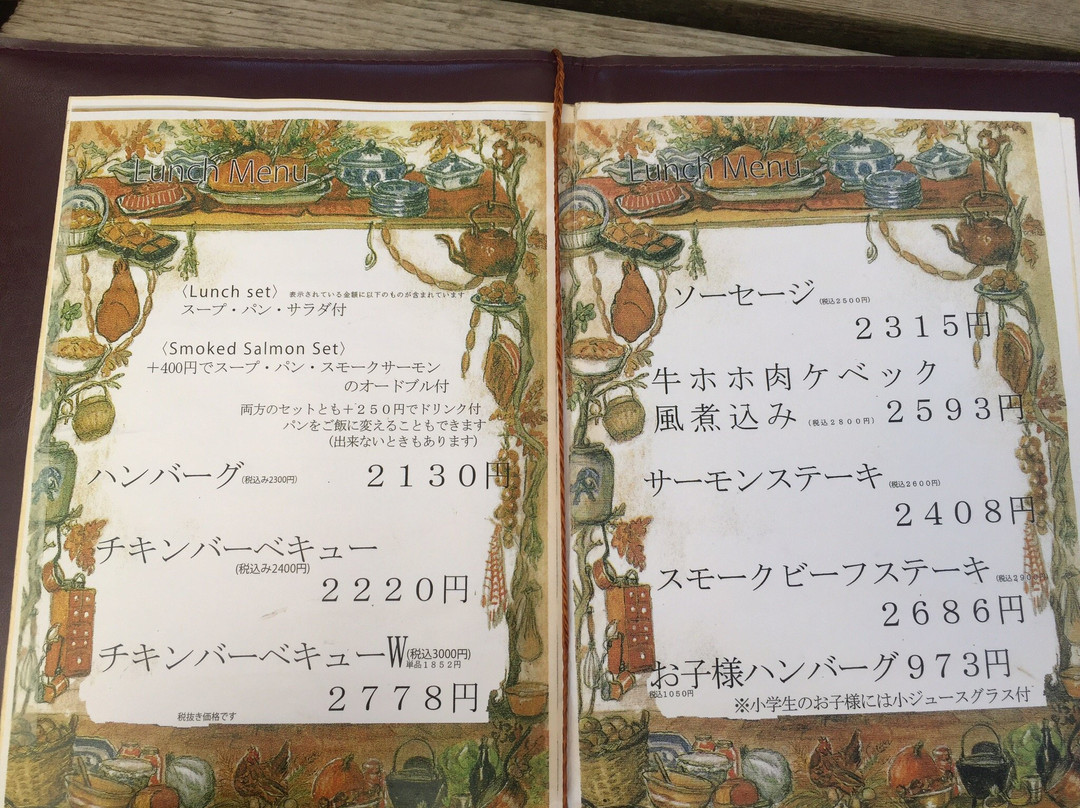 Lunch Menu
〈Lunch set〉 表示されている金額に以下のものが含まれています
スープ・パン・サラダ付
〈Smoked Salmon Set〉
＋400円でスープ・パン・スモークサーモン
のオードブル付
両方のセットとも＋２５０円でドリンク付
パンをご飯に変えることもできます
(出来ないときもあります)
ハンバーグ(税込み2300円) ２１３０円
チキンバーベキュー
(税込み2400円)
２２２０円
チキンバーベキューW(税込3000円)
単品１８５２円
２７７８円
税抜き価格です
Lunch Menu
ソーセージ(税込２５００円)
２３１５円
牛ホホ肉ケベック
風煮込み(税込２８００円) ２５９３円
サーモンステーキ(税込２６００円)
２４０８円
スモークビーフステーキ(税込２９０
２６８６円
お子様ハンバーグ９７３円
税込１０５０円
※小学生のお子様には小ジュースグラス付